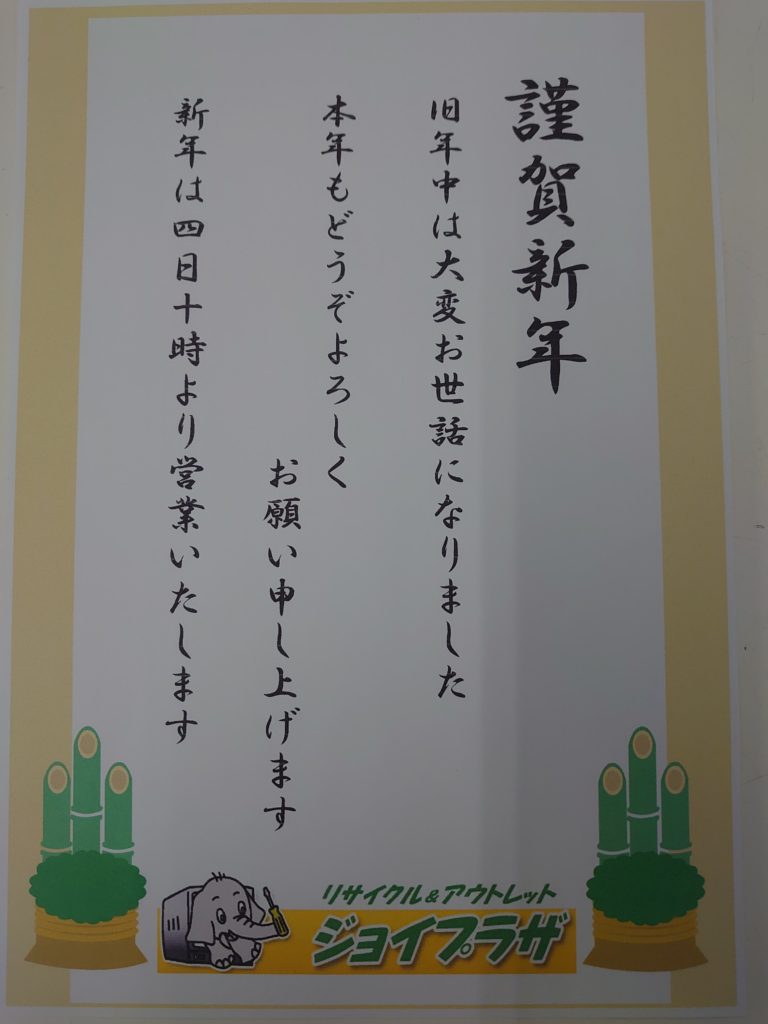 謹賀新年
旧年中は大変お世話になりました
本年もどうぞよろしく
お願い申し上げます
新年は四日十時より営業いたします
リサイクル&アウトレット
ジョイプラザ